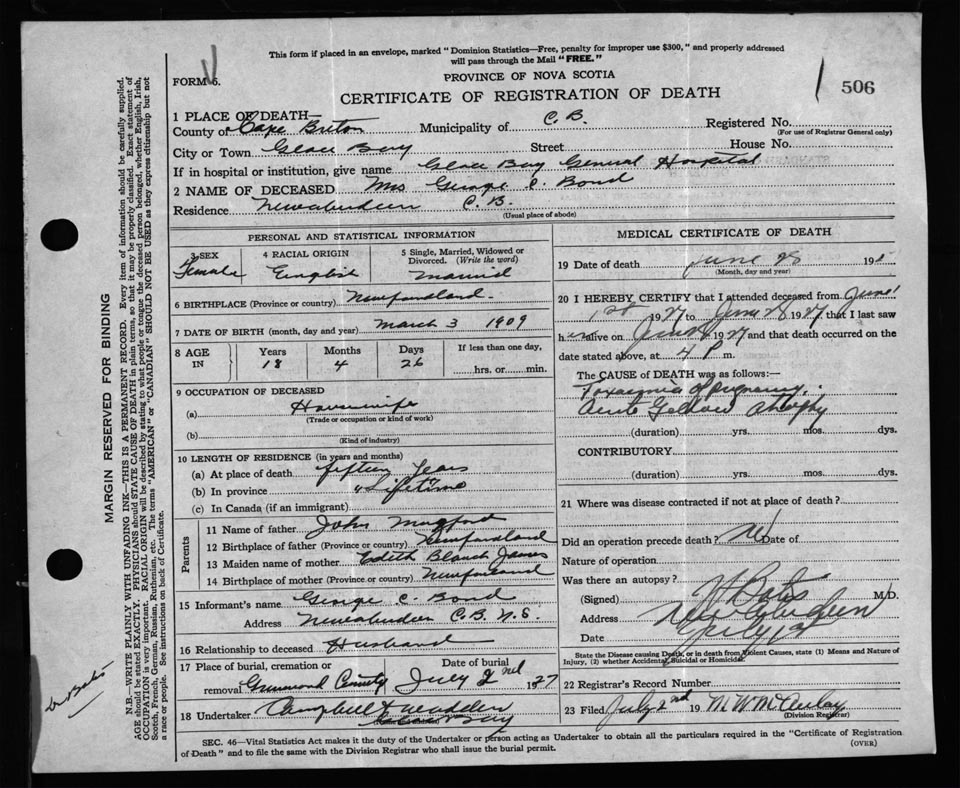 This form if placed in an envelope, marked "Dominion Statistics—Free, penalty for improper use $300," and properly addressed
will pass through the Mail "FREE."
FORM 6.
PROVINCE OF NOVA SCOTIA
506
CERTIFICATE OF REGISTRATION OF DEATH
1 PLACE OF DEATH
County of Cape Breton Municipality of C. B. Registered No.
(For use of Registrar General only)
City or Town Glace Bay Street House No.
If in hospital or institution, give name Glace Bay General Hospital
2 NAME OF DECEASED Mrs George C. Bond
Residence Newaberdeen C. B.
(Usual place of abode)
PERSONAL AND STATISTICAL INFORMATION
3 SEX Female
4 RACIAL ORIGIN English
5 Single, Married, Widowed or Divorced. (Write the word) Married
6 BIRTHPLACE (Province or country) Newfoundland.
7 DATE OF BIRTH (month, day and year) March 3 1909
8 AGE IN Years 18 Months 4 Days 26 If less than one day, hrs. or min.
9 OCCUPATION OF DECEASED
(a) Housewife
(Trade or occupation or kind of work)
(b)
(Kind of industry)
10 LENGTH OF RESIDENCE (in years and months)
(a) At place of death fifteen Years
(b) In province " Lifetime
(c) In Canada (if an immigrant)
Parents
11 Name of father John Mugford
12 Birthplace of father (Province or country) Newfoundland
13 Maiden name of mother Edith Blanch James
14 Birthplace of mother (Province or country) Newfoundland
15 Informant's name George C. Bond
Address Newaberdeen C. B. N. S.
16 Relationship to deceased Husband
17 Place of burial, cremation or removal Date of burial July 2nd 1927
18 Undertaker Campbell & Madden
Glace Bay
MEDICAL CERTIFICATE OF DEATH
19 Date of death June 28 19
(Month, day and year)
20 I HEREBY CERTIFY that I attended deceased from June
1st 1927 to June 28 1927 that I last saw
h alive on June 1927 and that death occurred on the
date stated above, at 4 P m.
The CAUSE of DEATH was as follows:—
Toxaemia of pregnancy.
Acute Yellow Atrophy
(duration) yrs. mos. dys.
CONTRIBUTORY
(duration) yrs. mos. dys.
21 Where was disease contracted if not at place of death?
Did an operation precede death? No Date of
Nature of operation
Was there an autopsy?
(Signed) Bates M.D.
Address New Aberdeen
Date July
State the Disease causing Death, or in death from Violent Causes, state (1) Means and Nature of
Injury, (2) whether Accidental, Suicidal or Homicidal.
22 Registrar's Record Number
23 Filed July 2nd 19 M. W. McAulay
(Division Registrar)
SEC. 46—Vital Statistics Act makes it the duty of the Undertaker or person acting as Undertaker to obtain all the particulars required in the "Certificate of Registration
of Death" and to file the same with the Division Registrar who shall issue the burial permit.
(OVER)
MARGIN RESERVED FOR BINDING
N.B.—WRITE PLAINLY WITH UNFADING INK—THIS IS A PERMANENT RECORD. Every item of information should be carefully supplied.
AGE should be stated EXACTLY. PHYSICIANS should STATE CAUSE OF DEATH in plain terms, so that it may be properly classified. Exact statement of
OCCUPATION is very important. RACIAL ORIGIN will be described by stating to what people or tongue the deceased person belonged, whether English, Irish,
Scotch, French, German, Russian, Ruthenian, etc. The terms "AMERICAN" or "CANADIAN" SHOULD NOT BE USED as they express citizenship but not
a race or people. See instructions on back of Certificate.